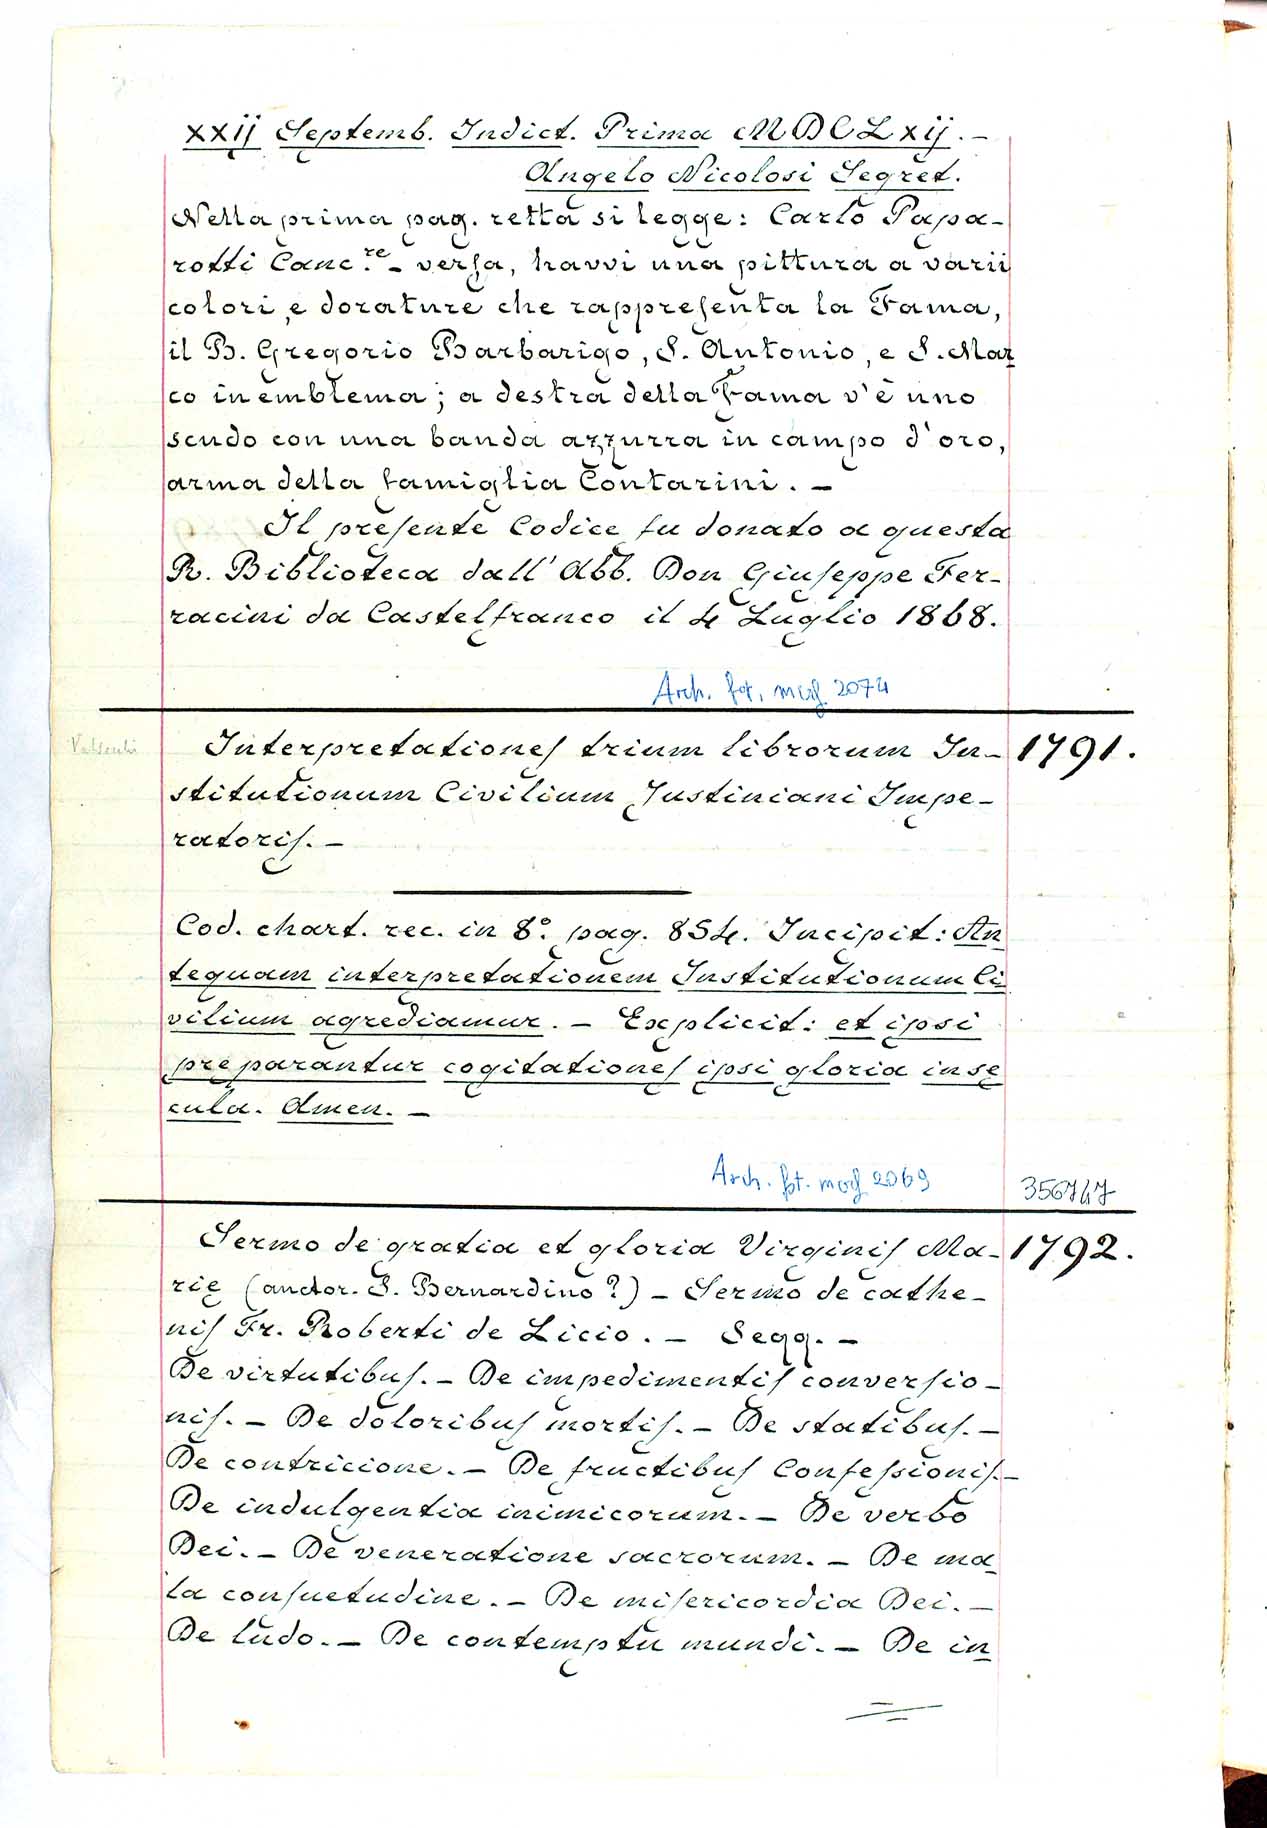 xxij Septemb. Indict. Prima MDCLxij. –
Angelo Nicolosi Segret.
Nella prima pag. retta si legge: Carlo Papa-
rotti Canc.re – versa, havvi una pittura a varii
colori, e dorature che rappresenta la Fama,
il B. Gregorio Barbarigo, S. Antonio, e S. Mar
co in emblema; a destra della Fama v'è uno
scudo con una banda azzurra in campo d'oro,
arma della famiglia Contarini. –
Il presente Codice fu donato a questa
R. Biblioteca dall' Abb. Don Giuseppe Fer-
racini da Castelfranco il 4 Luglio 1868.
Arch. fot. mod 2074
Interpretationes trium librorum In- 1791.
stitutionum Civilium Justiniani Impe-
ratoris. –
Cod. chart. rec. in 8.° pag. 854. Incipit: An
tequam interpretationem Institutionum Ci
vilium agrediamur. – Explicit: et ipsi
preparantur cogitationes ipsi gloria in sę
cula. Amen. –
Arch. fot. mod 2069
356747
Sermo de gratia et gloria Virginis Ma- 1792.
rię (auctor. S. Bernardino?) – Sermo de cathe-
nis Fr. Roberti de Licio. – Segg. –
De virtutibus. – De impedimentis conversio-
nis. – De doloribus mortis. – De statibus. –
De contricione. – De fructibus Confessionis. –
De indulgentia inimicorum. – De verbo
Dei. – De veneratione sacrorum. – De ma
la consuetudine. – De misericordia Dei. –
De ludo. – De contemptu mundi. – De in